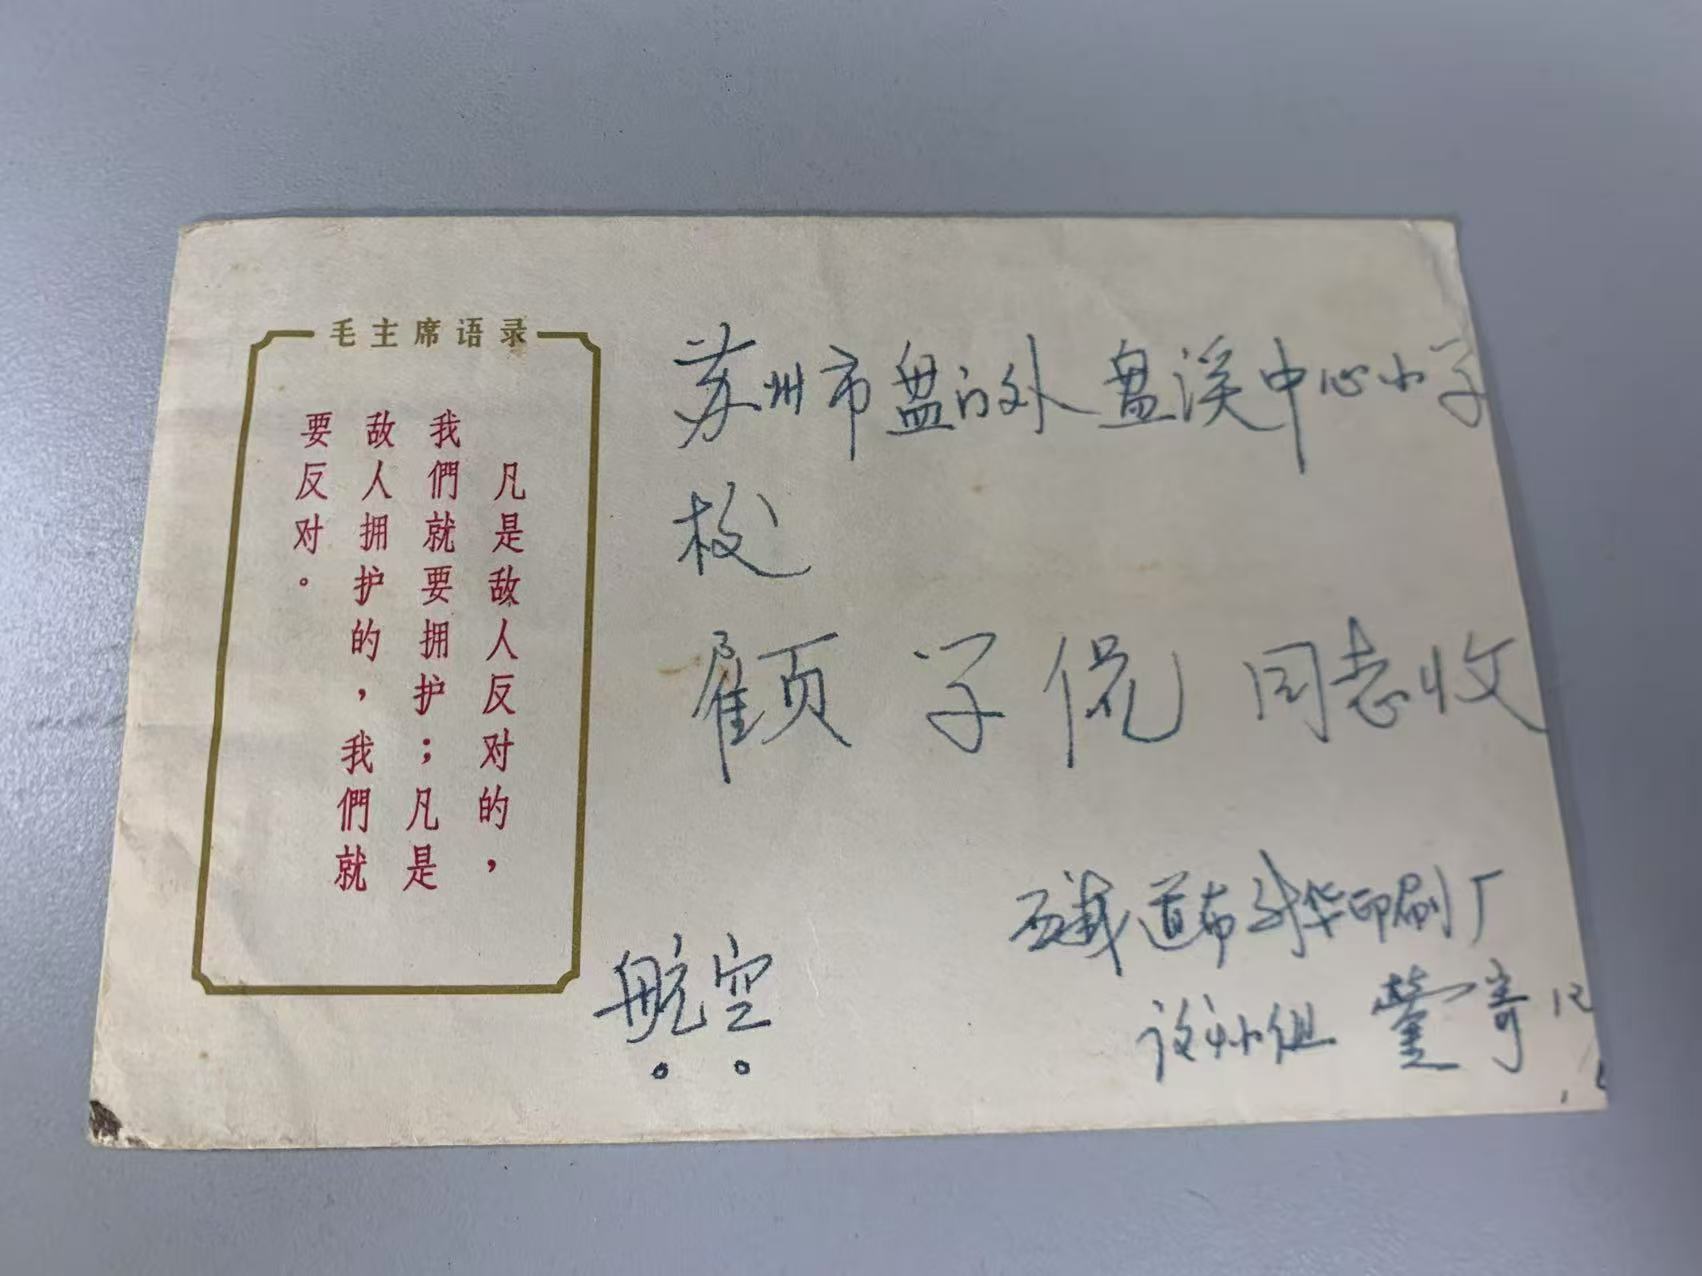 毛主席语录
凡是敌人反对的，
我們就要拥护；凡是
敌人拥护的，我們就
要反对。
苏州市盘门外盘溪中心小学
校
顾学侃同志收
新华印刷厂
小组 寄
航空